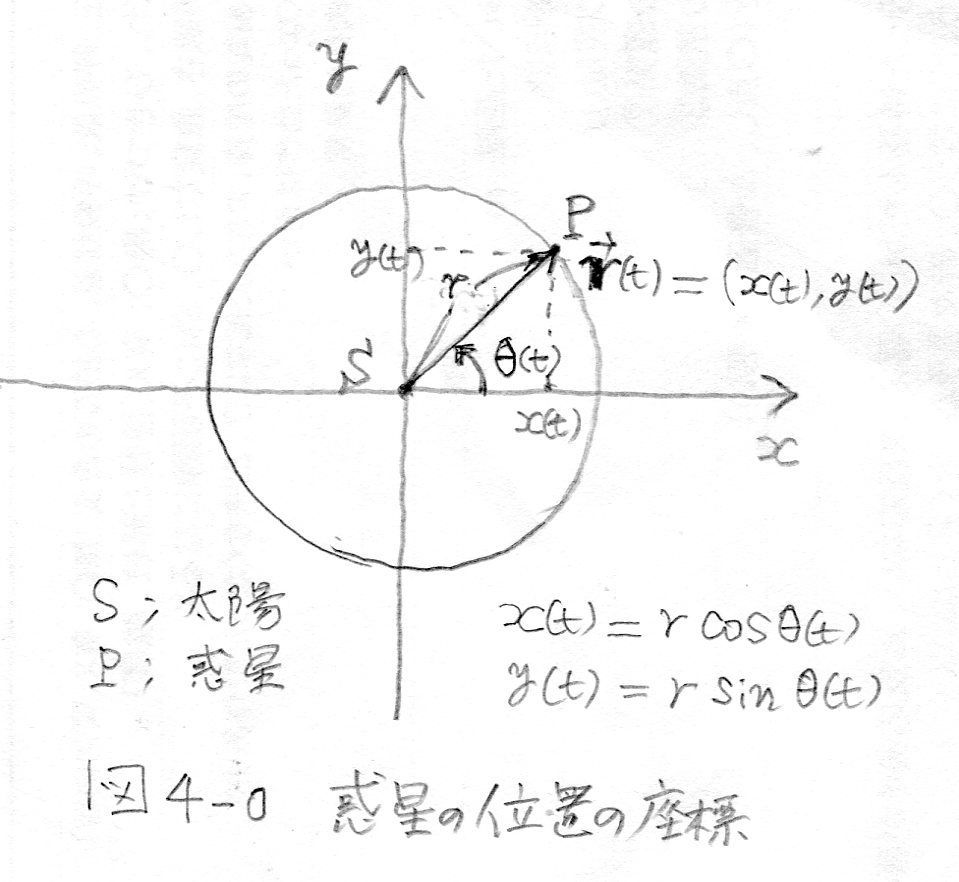 y
P
y(t)
r
r⃗(t) = (x(t), y(t))
S
θ(t)
x(t)
x
S ; 太陽
P ; 惑星
x(t) = r cos θ(t)
y(t) = r sin θ(t)
図4-0 惑星の位置の座標